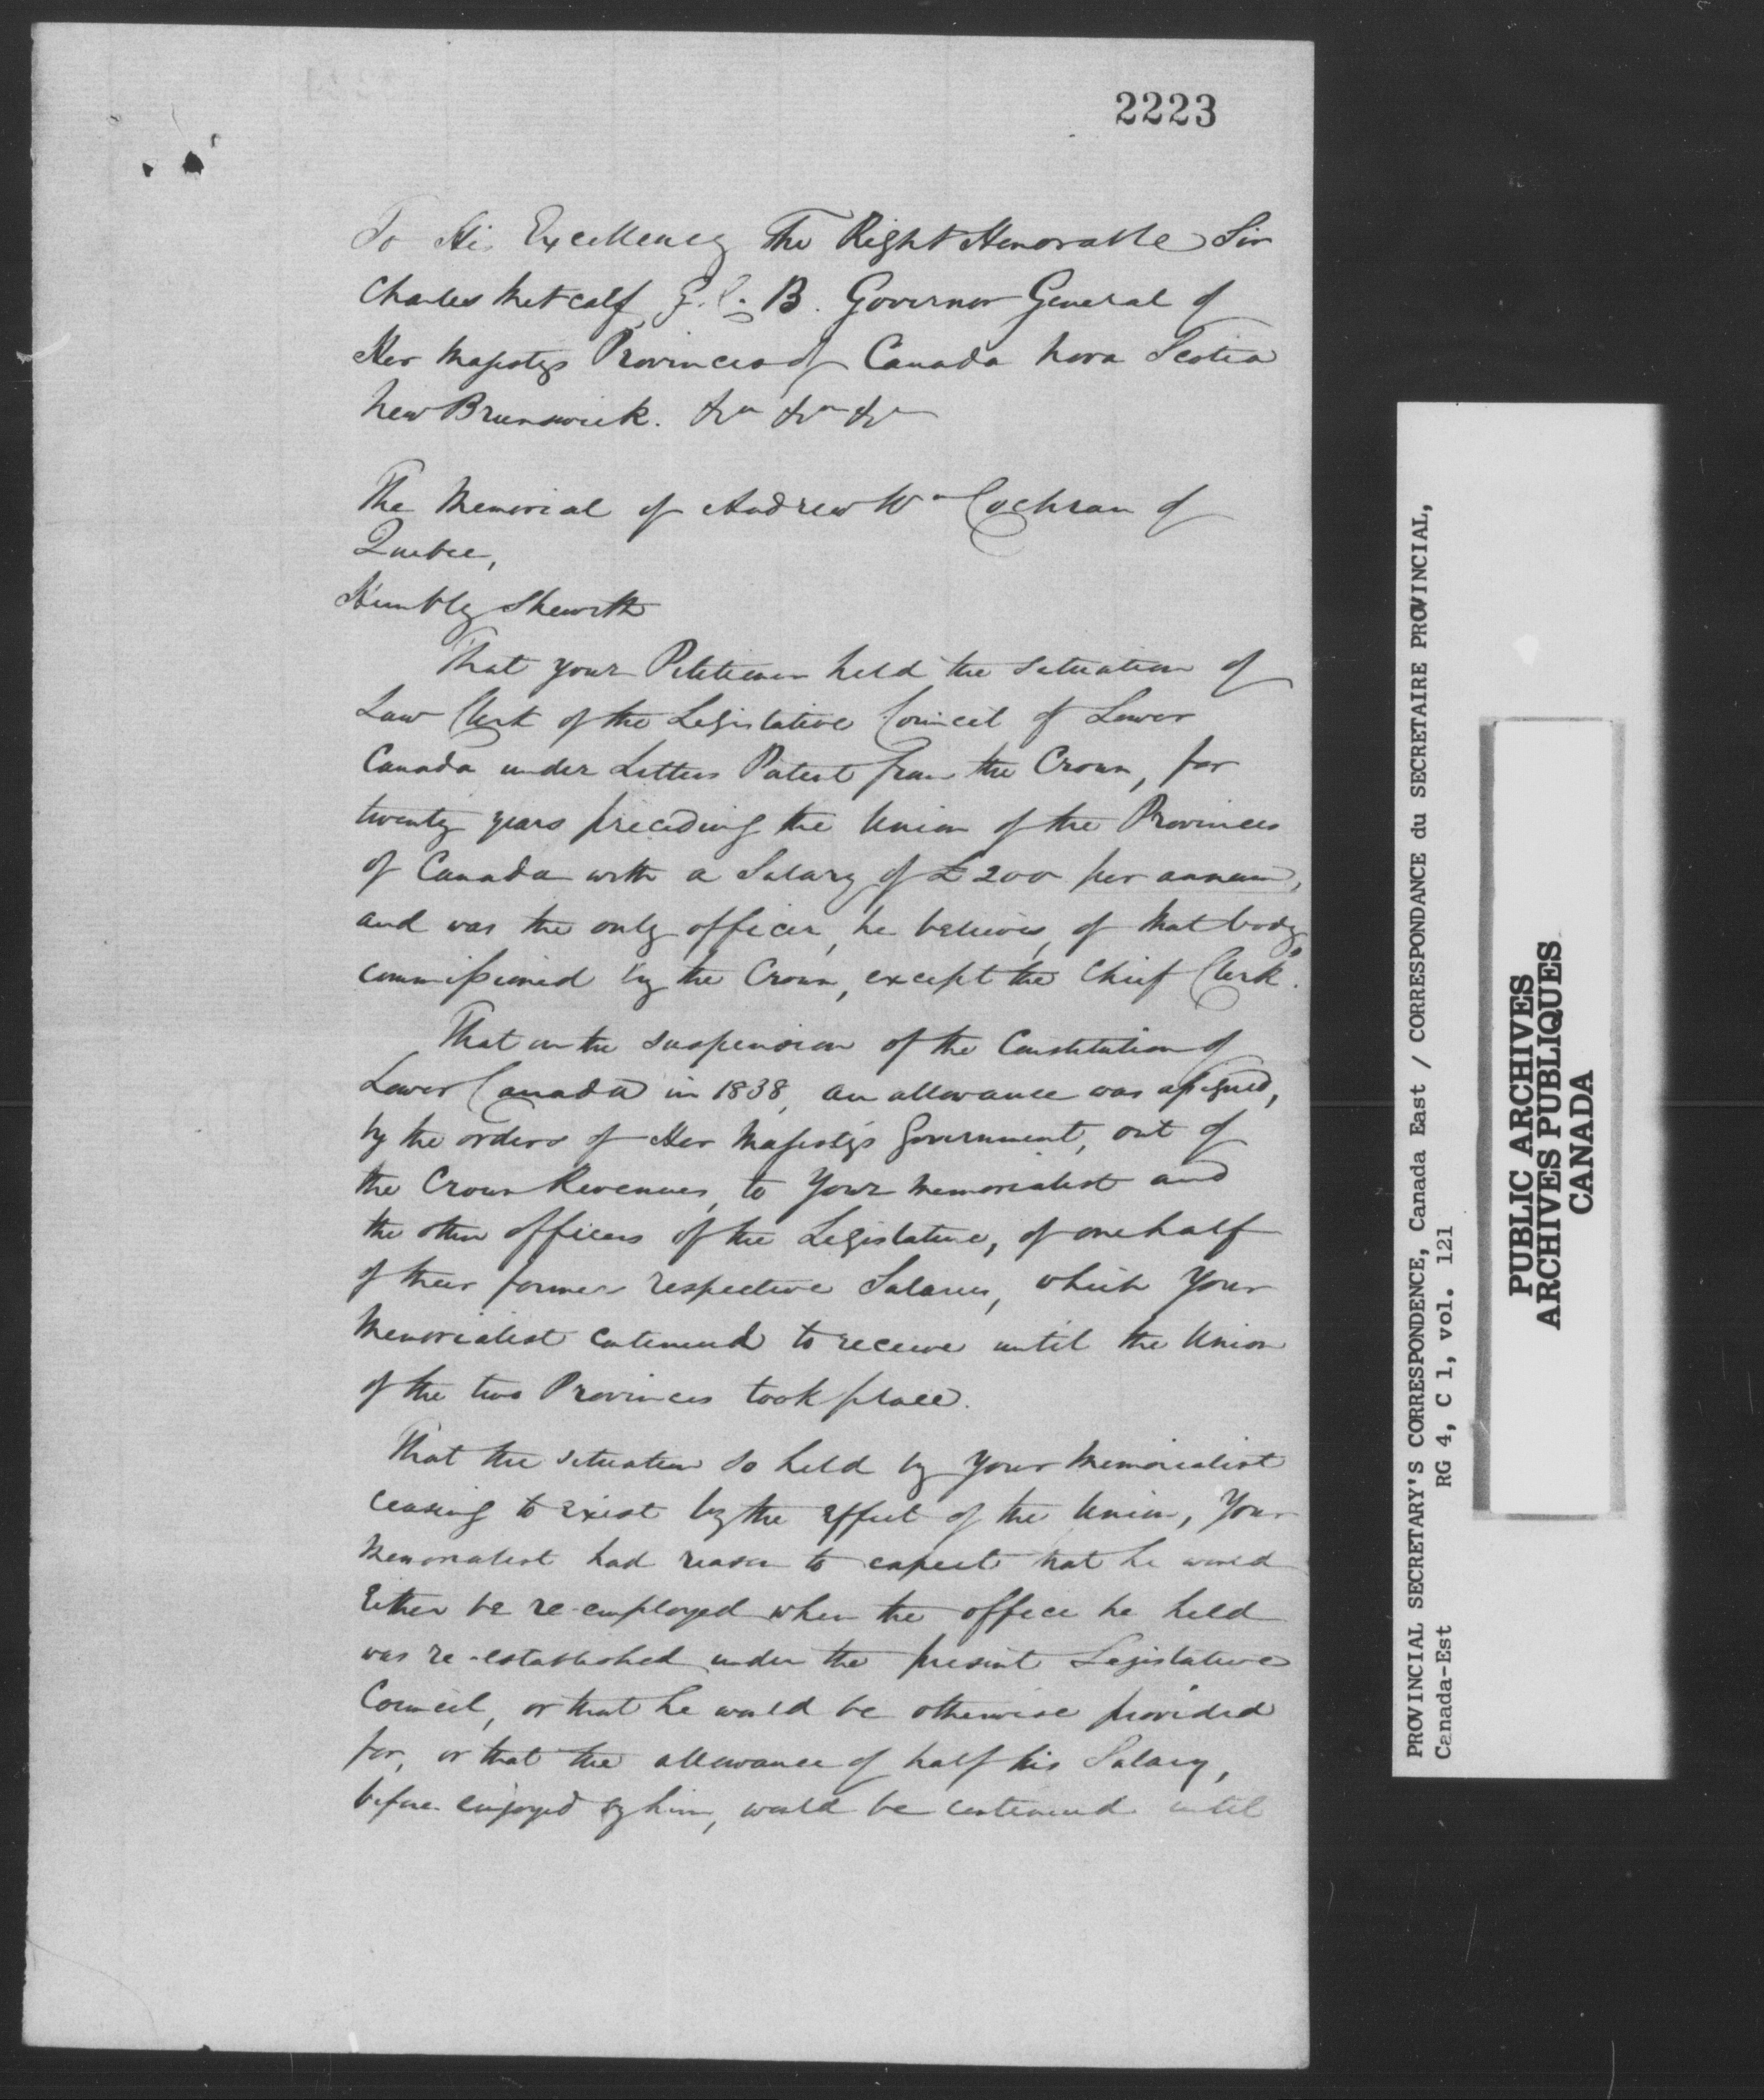 2223
To His Excellency The Right Honorable Sir
Charles Metcalf, G. C. B. Governor General of
Her Majestys Provinces of Canada Nova Scotia
New Brunswick. &a &a &a
The Memorial of Andrew Wm Cochran of
Quebec,
Humbly Sheweth
That your Petitioner held the situation of
Law Clerk of the Legislative Council of Lower
Canada under Letters Patent from the Crown, for
twenty years preceding the Union of the Provinces
of Canada with a Salary of £200 per annum,
and was the only officer, he believes, of that body,
commissioned by the Crown, except the Chief Clerk.
That on the suspension of the Constitution of
Lower Canada in 1838, an allowance was assigned,
by the orders of Her Majesty's Government, out of
the Crown Revenues, to Your Memorialist and
the other officers of the Legislature, of one half
of their former respective Salaries, which Your
Memorialist continued to receive until the Union
of the two Provinces took place.
That the situation so held by Your Memorialist
ceasing to exist by the effect of the Union, Your
Memorialist had reason to expect that he would
Either be re-employed when the office he held
was re-established under the present Legislative
Council, or that he would be otherwise provided
for, or that the allowance of half his Salary,
before enjoyed by him, would be continued until
PROVINCIAL SECRETARY'S CORRESPONDENCE, Canada East / CORRESPONDANCE du SECRETAIRE PROVINCIAL,
Canada-Est RG 4, C 1, vol. 121
PUBLIC ARCHIVES
ARCHIVES PUBLIQUES
CANADA